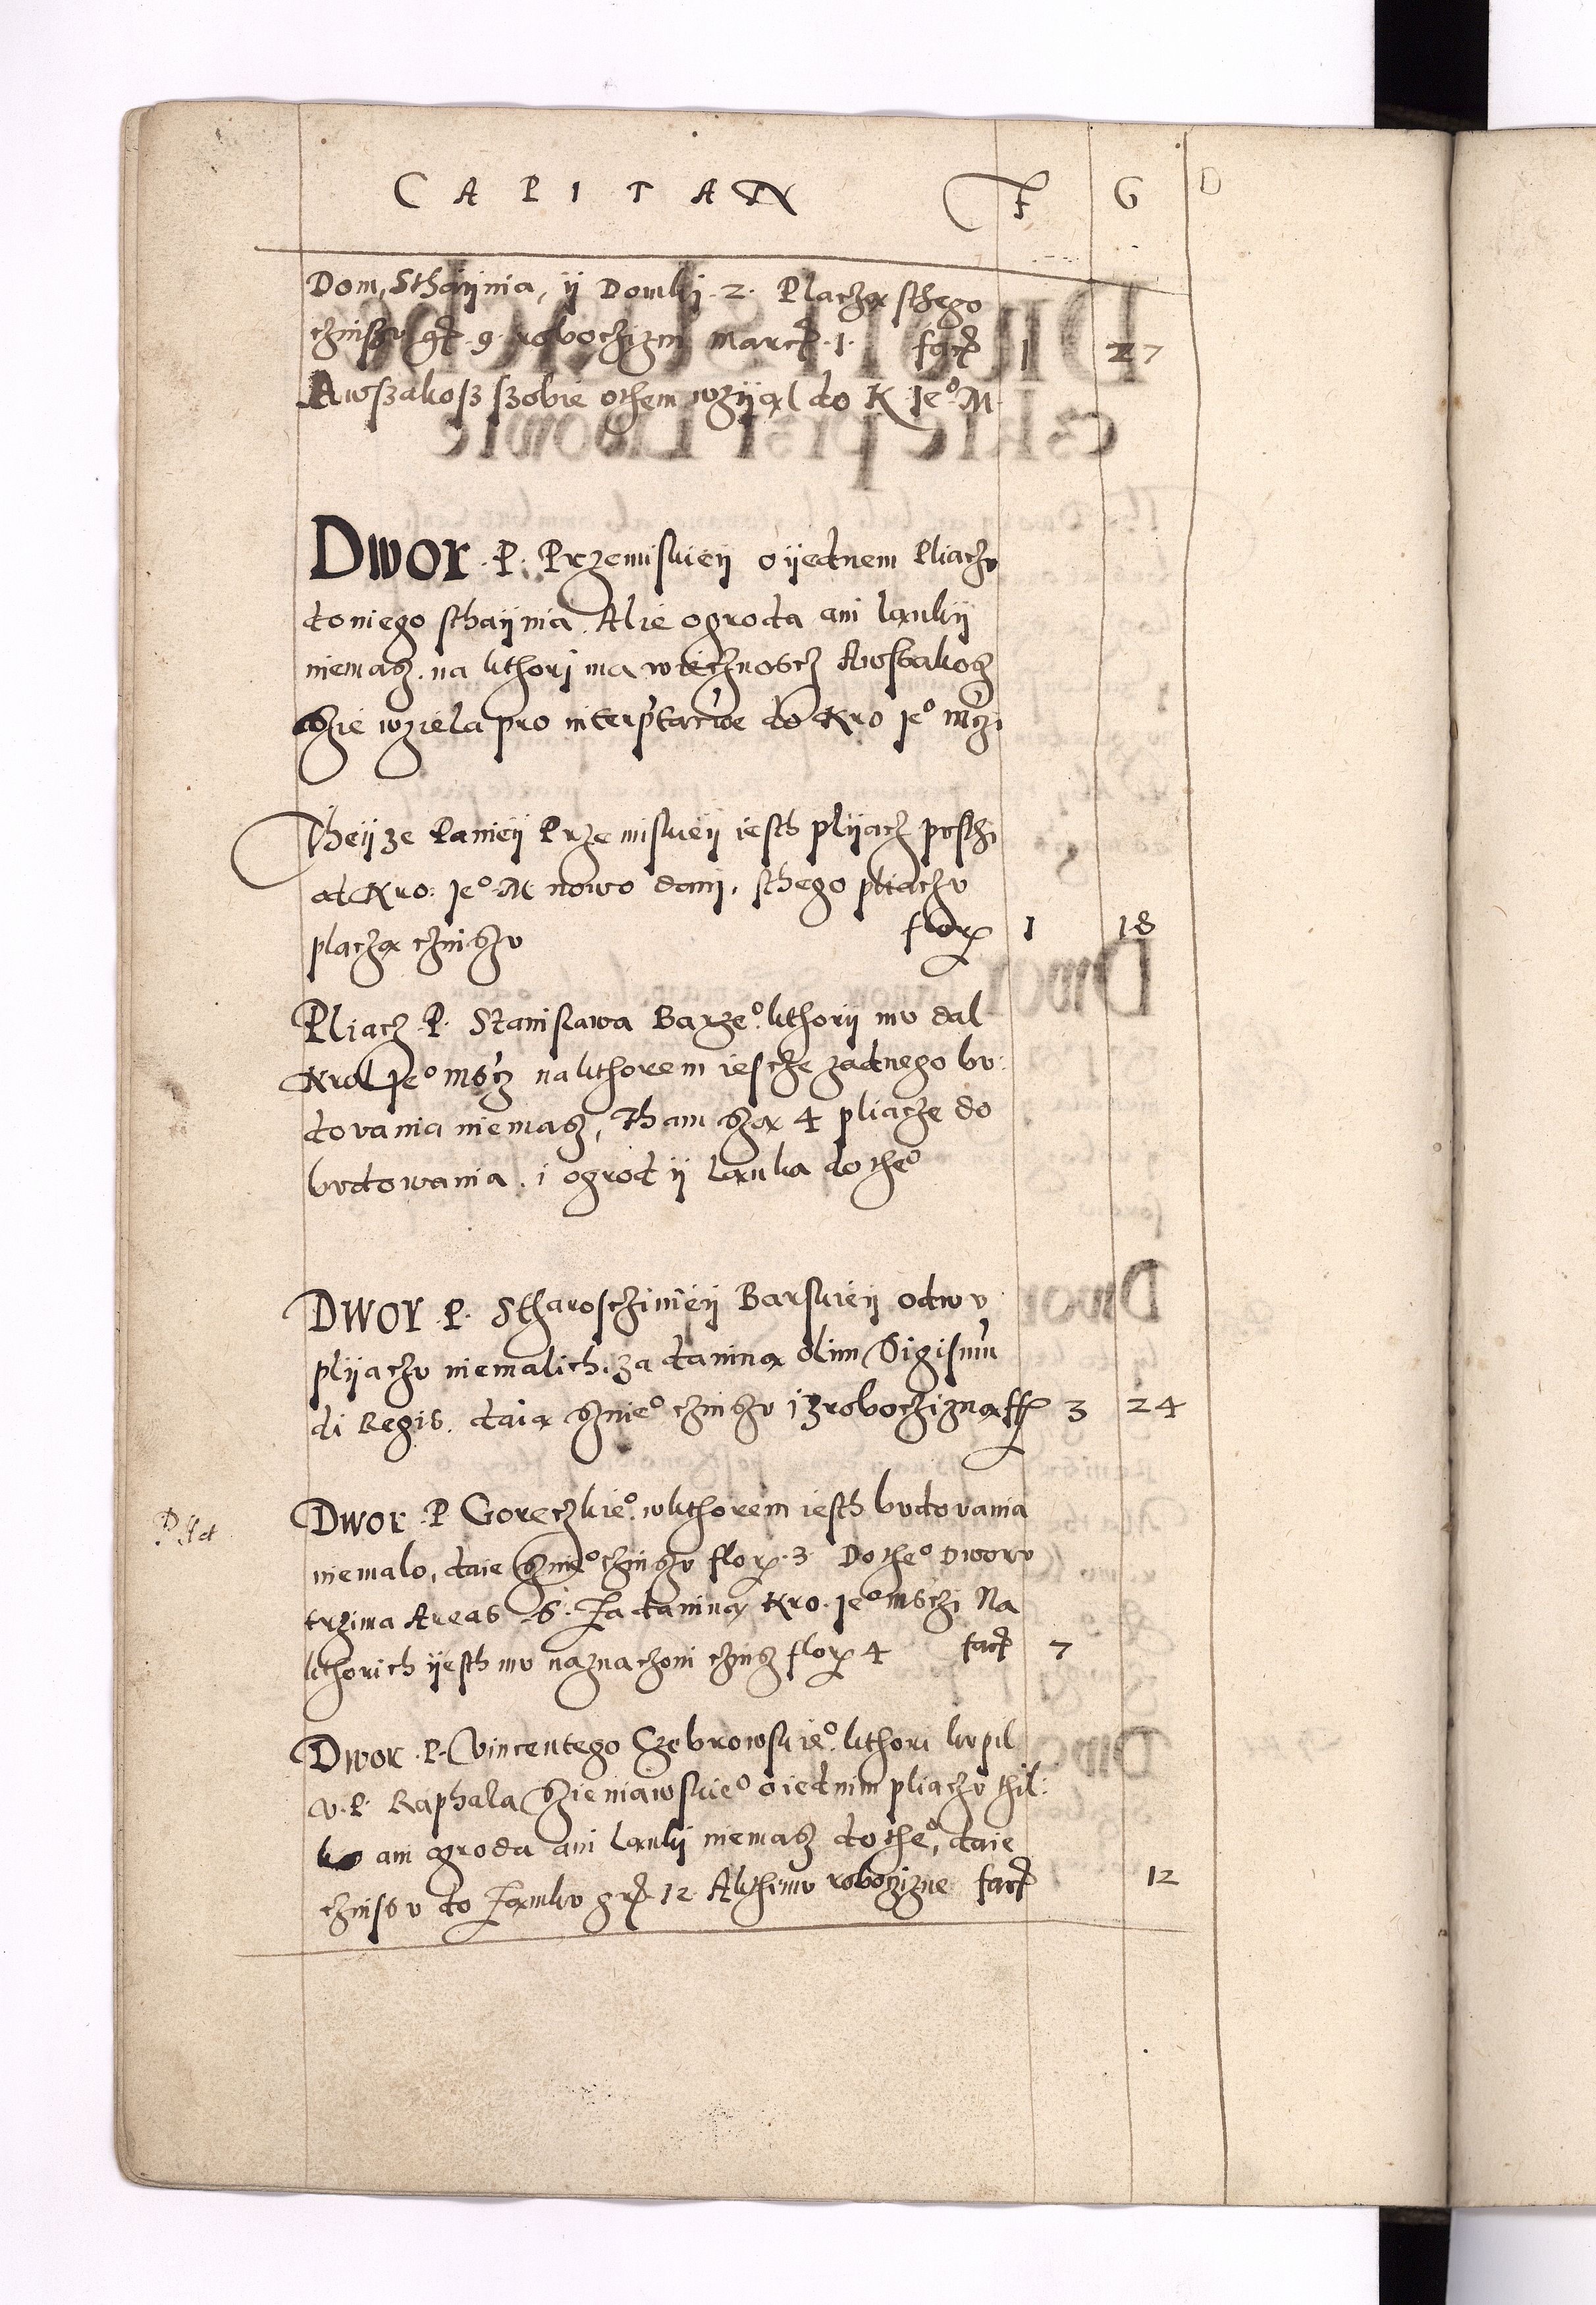 CAPITAN F G D
Dom, Sthaijnia, ij Domkj .2. Placzą sthego
czinszu gr̃. 9. robocziznij marc̃. 1. fac̃ 1 27
Awszakosz szobie othem wzijąl do K. Je° M.
Dwor .P. Przemiskieij o ijednem Pliaczu
do niego sthaijnia. Alie ogroda ani ląnkij
niemasz. na kthorj ma wiecznoscz Awszakosz
szie wziela pro interp̃tacioe do Kro Je° mczi
Theijze Panieij Przemiskieij iesth plijacz posthi
od Kro: Je° M nowo danj, sthego pliaczu
placzą czinszu flor. 1 18
Pliacz .P. Stanislawa Barze°. kthorij mu dal
Krol Je° mscz na kthorem iescze zadnego bu:
dovania niemasz, Tham szą 4 pliacze do
budowania. i ogrod ij lanka do the°
Dwor .P. Stharoscziniéij Barskieij o dwu
plijaczu niemalich. za daniną olim Sigismū
di Regis. daią sznie° czinszu i zroboczizną ff. 3 24
Dwor .P Goreczkie°. w kthorem iesth budovania
niemalo, daie sznie° czinszu flor. 3. Do the° Dworu
trzima Areas .6. Za daniną Kro. Je° msczi Na
kthorich ijesth mu naznaczoni czinsz flor. 4 fac̃ 7
Dwor .P. Vincentego Szebrowskie°. kthori kupil
v. P. Raphala Szieniawskie° o iednim pliaczu thil:
ko ani ogroda ani lankj niemasz do the°, daie
czinszu do Zamku gr̃. 12. Akthimu roboczizne fac̃ 12